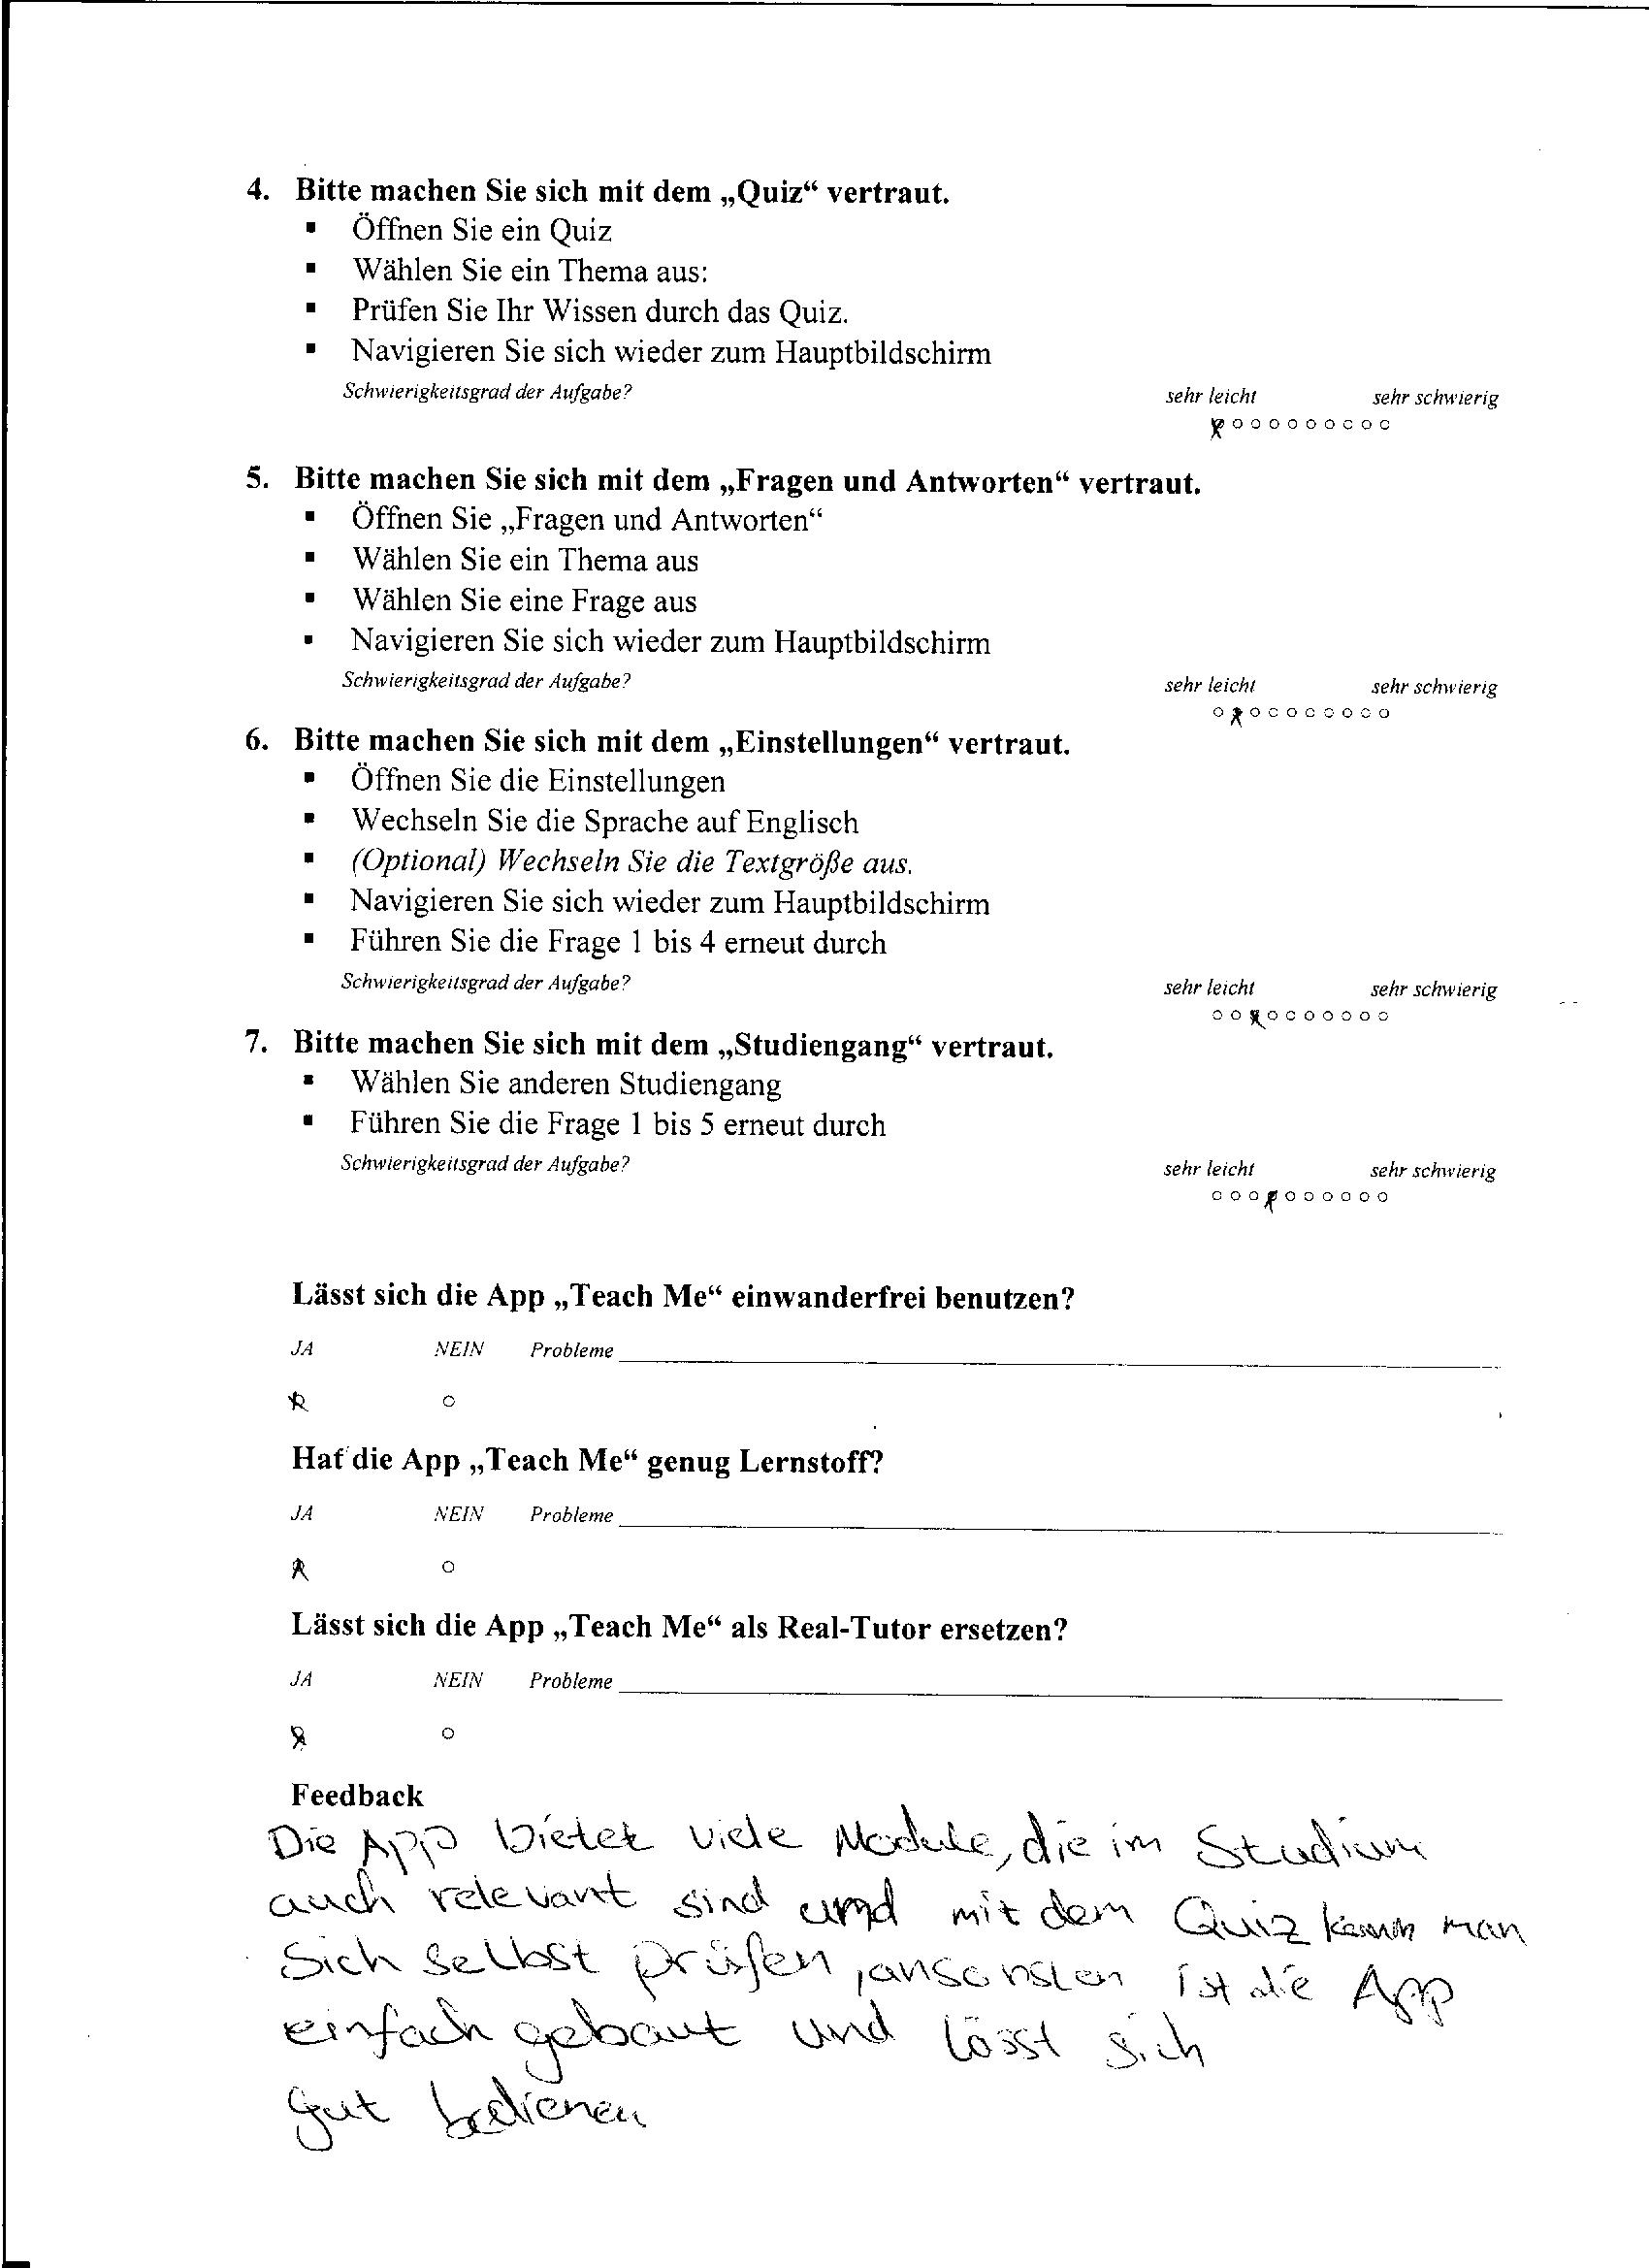 4. Bitte machen Sie sich mit dem „Quiz“ vertraut.
▪ Öffnen Sie ein Quiz
▪ Wählen Sie ein Thema aus:
▪ Prüfen Sie Ihr Wissen durch das Quiz.
▪ Navigieren Sie sich wieder zum Hauptbildschirm
Schwierigkeitsgrad der Aufgabe? sehr leicht sehr schwierig
5. Bitte machen Sie sich mit dem „Fragen und Antworten“ vertraut.
▪ Öffnen Sie „Fragen und Antworten“
▪ Wählen Sie ein Thema aus
▪ Wählen Sie eine Frage aus
▪ Navigieren Sie sich wieder zum Hauptbildschirm
Schwierigkeitsgrad der Aufgabe? sehr leicht sehr schwierig
6. Bitte machen Sie sich mit dem „Einstellungen“ vertraut.
▪ Öffnen Sie die Einstellungen
▪ Wechseln Sie die Sprache auf Englisch
▪ (Optional) Wechseln Sie die Textgröße aus.
▪ Navigieren Sie sich wieder zum Hauptbildschirm
▪ Führen Sie die Frage 1 bis 4 erneut durch
Schwierigkeitsgrad der Aufgabe? sehr leicht sehr schwierig
7. Bitte machen Sie sich mit dem „Studiengang“ vertraut.
▪ Wählen Sie anderen Studiengang
▪ Führen Sie die Frage 1 bis 5 erneut durch
Schwierigkeitsgrad der Aufgabe? sehr leicht sehr schwierig
Lässt sich die App „Teach Me“ einwanderfrei benutzen?
JA NEIN Probleme
Hat die App „Teach Me“ genug Lernstoff?
JA NEIN Probleme
Lässt sich die App „Teach Me“ als Real-Tutor ersetzen?
JA NEIN Probleme
Feedback
Die App bietet viele Module, die im Studium
auch relevant sind und mit dem Quiz kann man
sich selbst prüfen, ansonsten ist die App
einfach gebaut und lässt sich
gut bedienen